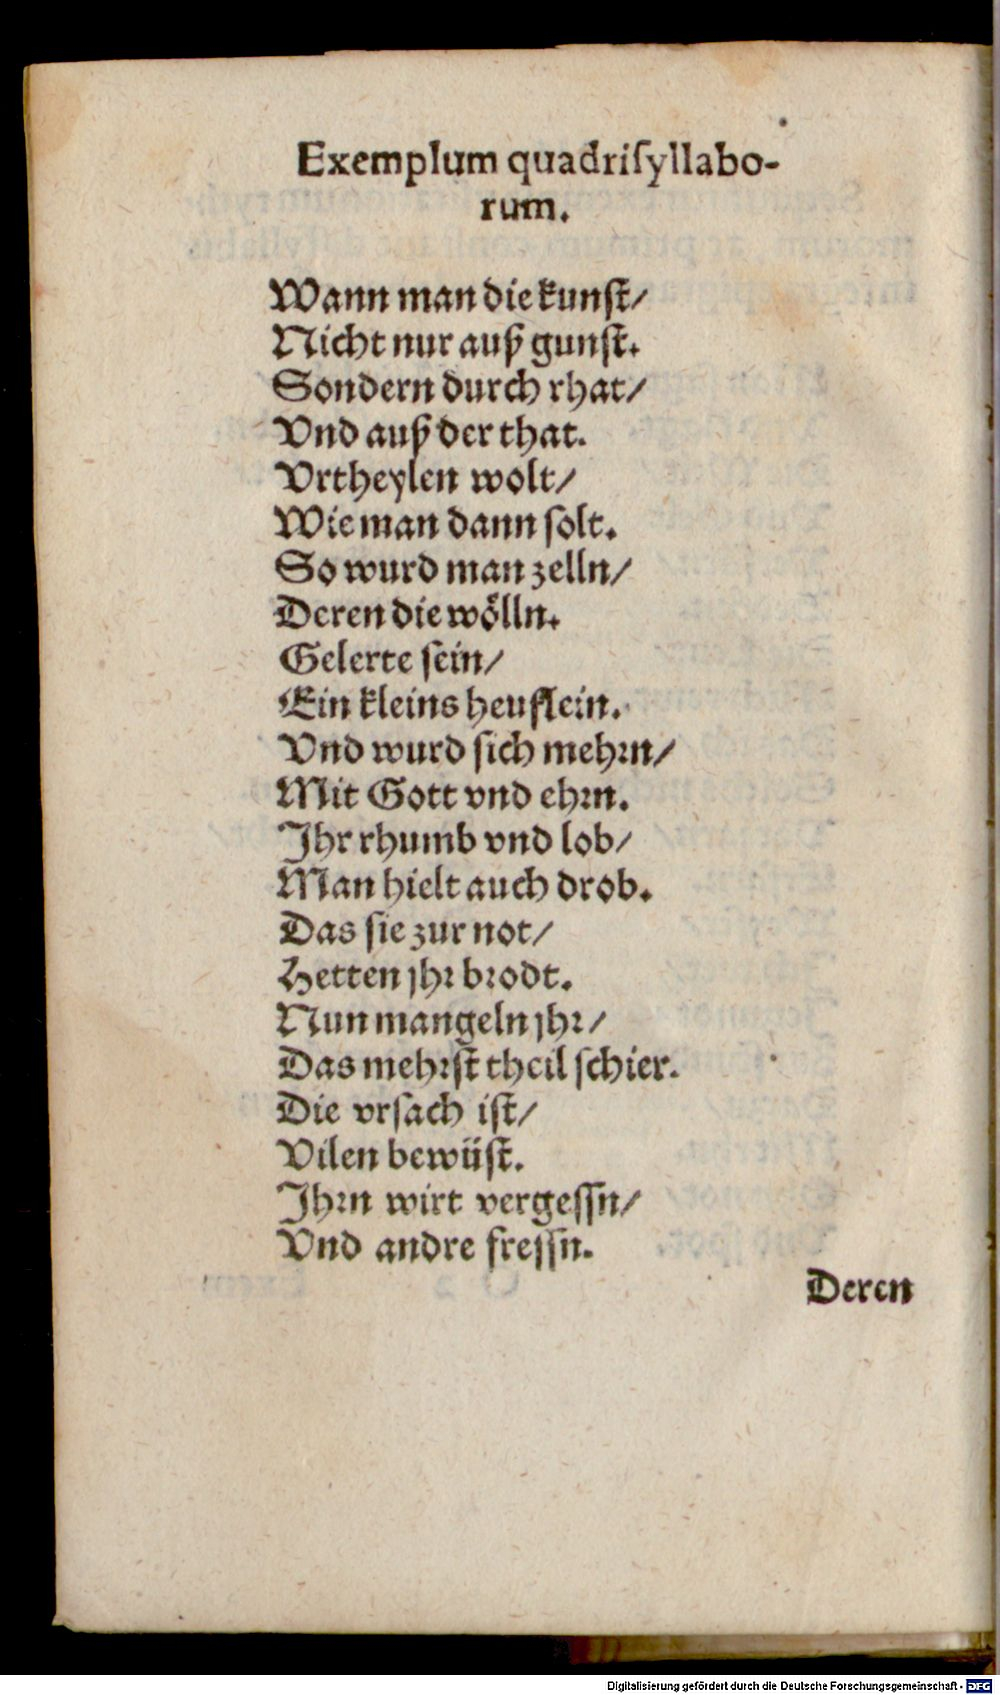 Exemplum quadriſyllabo-
rum.
Wann man die kunſt/
Nicht nur auß gunſt.
Sondern durch rhat/
Vnd auß der that.
Vrtheylen wolt/
Wie man dann ſolt.
So wurd man zelln/
Deren die wölln.
Gelerte ſein/
Ein kleins heuflein.
Vnd wurd ſich mehrn/
Mit Gott vnd ehrn.
Ihr rhumb vnd lob/
Man hielt auch drob.
Das ſie zur not/
Hetten jhr brodt.
Nun mangeln jhr/
Das mehrſt theil ſchier.
Die vrſach iſt/
Vilen bewüſt.
Ihrn wirt vergeſſn/
Vnd andre freſſn.
Deren
Digitalisierung gefördert durch die Deutsche Forschungsgemeinschaft - DFG